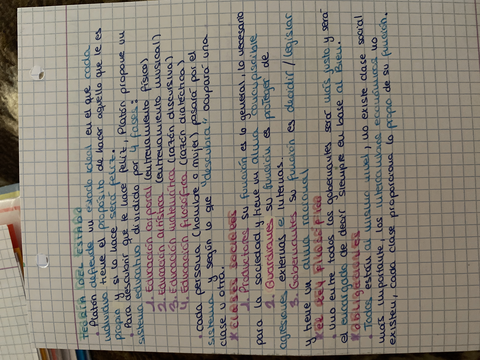 TEORÍA DEL ESTADO
· Platón defiende un estado ideal en el que cada
individuo tiene el propósito de hacer aquello que le es
propio y si lo hace será feliz.
· Para descubrir que le hace feliz, Platón propone un
sistema educativo dividido por 4 fases:
1. Educación corporal (entrenamiento físico)
2. Educación artística (entrenamiento musical)
3. Educación matemática (razón discursiva)
4. Educación filosófica (razón dialéctica)
· Cada persona (hombre o mujer) pasará por el
sistema y según lo que "descubra" ocupará una
clase u otra.
* CLASES SOCIALES
1. Productores: su función es lo general, lo necesario
para la sociedad y tiene un alma concupiscible
2. Guardianes: su función es proteger de
agresiones externas e internas
3. Gobernantes: su función es decidir / legislar
y tiene un alma racional
* EL REY FILÓSOFO
· Uno entre todos los gobernantes será más justo y será
el encargado de decidir siempre en base al Bien.
* OBLIGACIONES
· Todos están al mismo nivel, no existe clase social
más importante, las interacciones económicas no
existen, cada clase proporciona lo propio de su función.